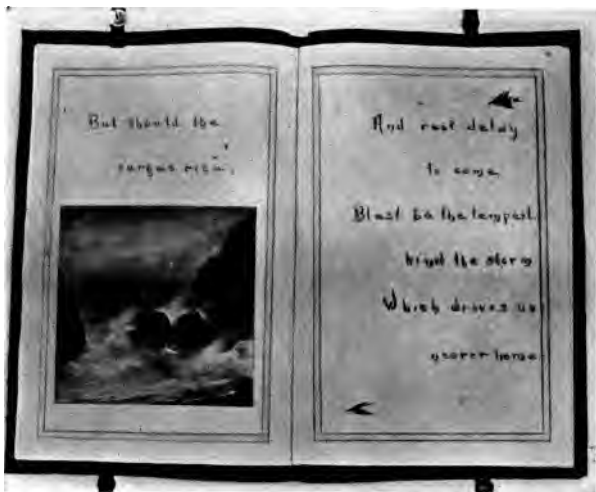 But should the
surges rise,
And rest delay
to come
Blest be the tempest
kind the storm
Which drives us
nearer home